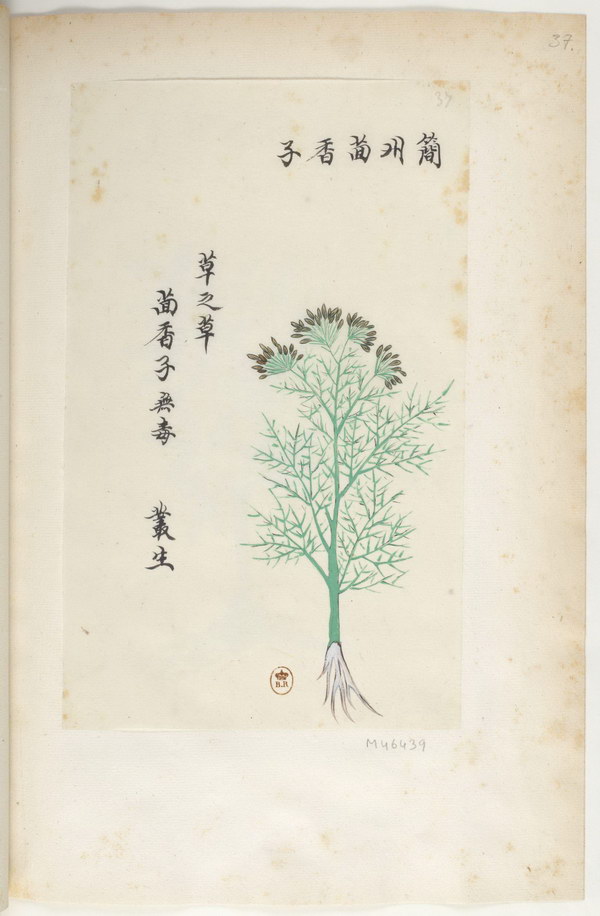 37.
37
簡州茴香子
草之草
茴香子無毒 叢生
B.R
M46439